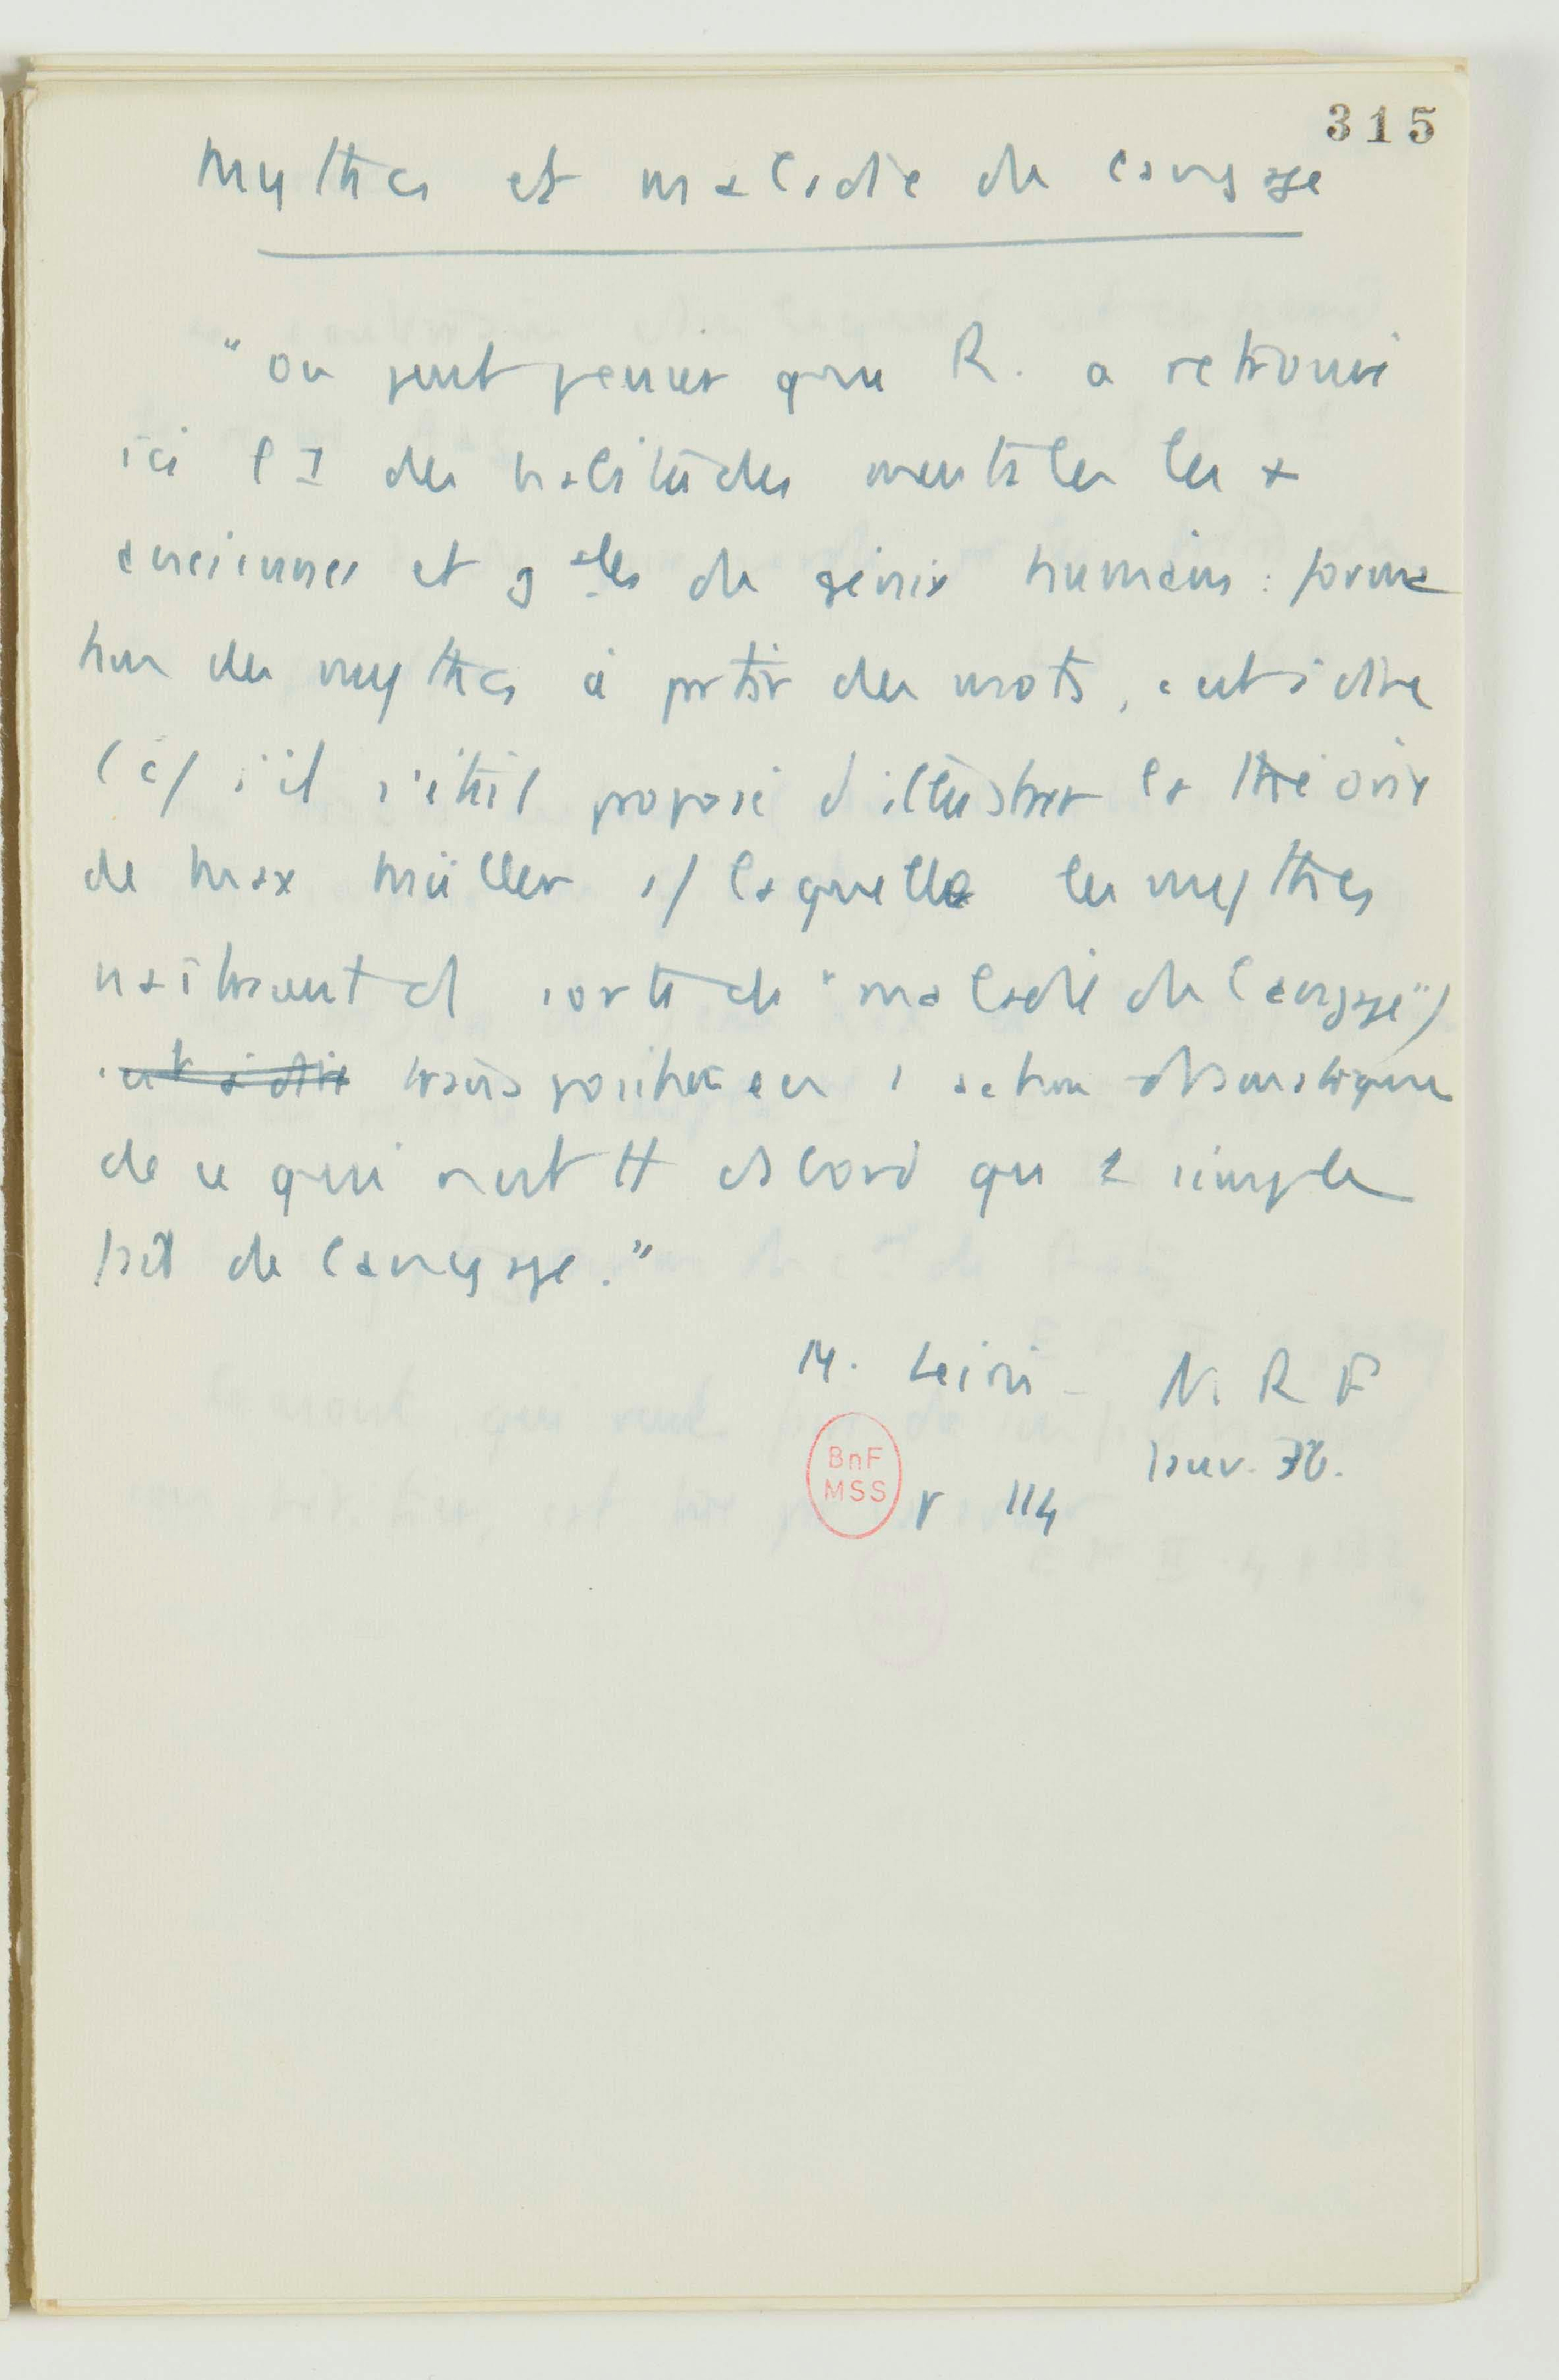 315
Mythes et maladie du langage
"on peut penser que R. a retrouvé
ici l'1 des habitudes mentales les +
anciennes et gales du génie humain : forma
tion des mythes à partir des mots, c'est à dire
(c/ s'il s'était proposé d'illustrer la théorie
de Max Müller s/ laquelle les mythes
naîtraient d' sorte de "maladie du langage")
c'est à dire transposition en 1 action dramatique
de ce qui n'est tt d'abord qu' 1 simple
fait de langage."
M. Leiris - N. R F
Janv. 36.
p 114
BnF
MSS